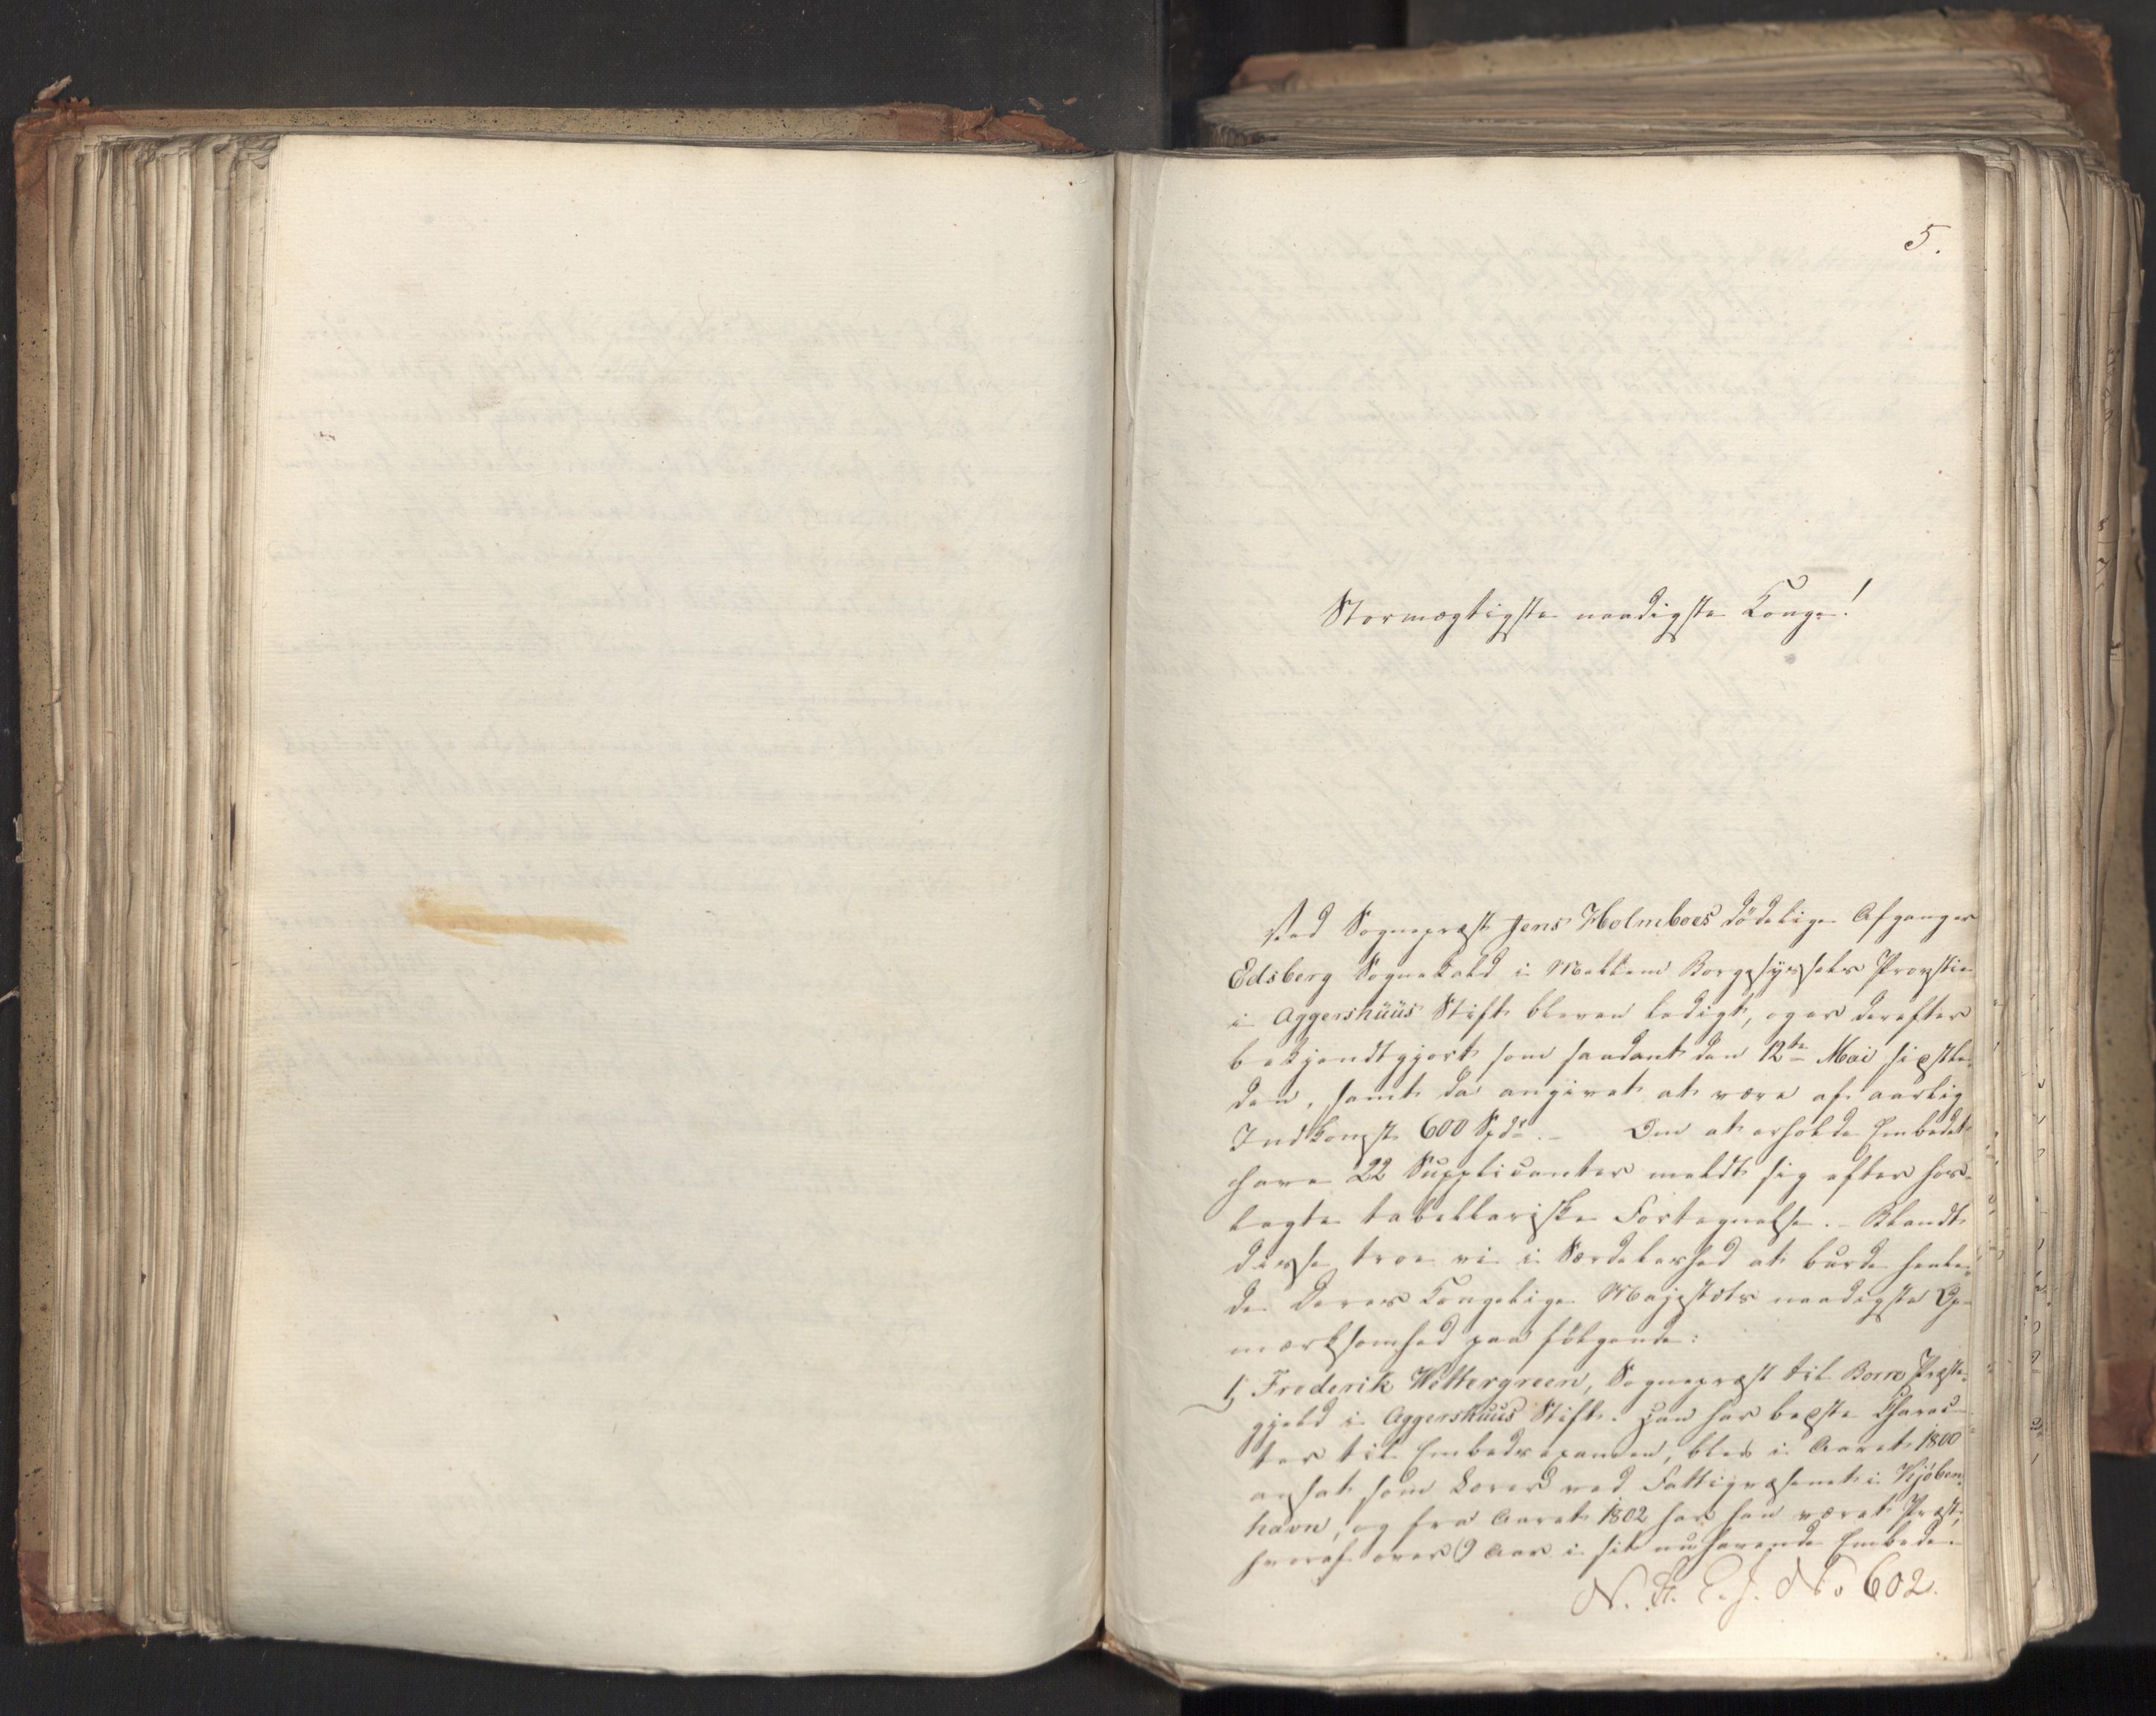 5.
Stormægtigste naadigste Konge!
Ved Sognepræst Jens Holmboes dødelige Afgang er
Edsberg Sognekald i Mellem Borgesyssels Provstie
i Aggershuus Stift bleven ledigt, og er derefter
bekjendtgjort som saadant den 12te Mai sidstle-
den, samt da angivet at være af aarlig
Indkomst 600 Spdr. – Om at erholde Embedet
have 22 Supplicanter meldt sig efter hos-
lagte tabellariske Fortegnelse. – Blandt
disse troe vi i Særdeleshed at burde henle-
de Deres Kongelige Majestæts naadigste Op-
mærksomhed paa følgende:
1, Frederik Wettergreen, Sognepræst til Borre Præste-
gjeld i Aggershuus Stift. Han har bedste Charac-
ter til Embedsexamen, blev i Aaret 1800
ansat som Lærer ved Fattigvæsenet i Kjøben-
havn, og fra Aaret 1802 har han været Præst,
hvoraf over 9 Aar i sit nuhavende Embede.
N. St. E. J. No 602.